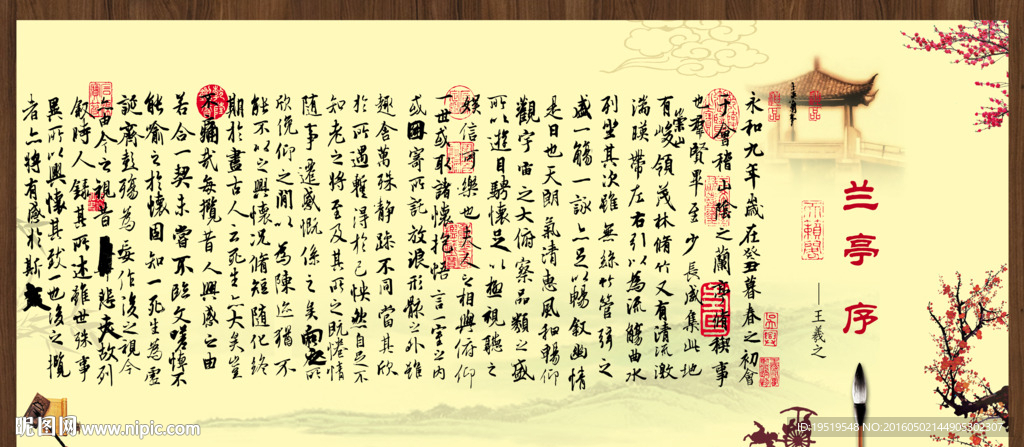 兰亭序
——王羲之
永和九年歲在癸丑暮春之初會
于會稽山陰之蘭亭脩禊事
也羣賢畢至少長咸集此地
有崇山峻領茂林脩竹又有清流激
湍暎帶左右引以為流觴曲水
列坐其次雖無絲竹管弦之
盛一觴一詠亦足以暢敘幽情
是日也天朗氣清惠風和暢仰
觀宇宙之大俯察品類之盛
所以遊目騁懷足以極視聽之
娛信可樂也夫人之相與俯仰
一世或取諸懷抱悟言一室之內
或因寄所託放浪形骸之外雖
趣舍萬殊靜躁不同當其欣
於所遇蹔得於己怏然自足不
知老之將至及其所之既惓情
隨事遷感慨係之矣向之所
欣俛仰之閒以為陳迹猶不
能不以之興懷況脩短隨化終
期於盡古人云死生亦大矣豈
不痛哉每攬昔人興感之由
若合一契未嘗不臨文嗟悼不
能喻之於懷固知一死生為虛
誕齊彭殤為妄作後之視今
亦由今之視昔悲夫故列
敘時人錄其所述雖世殊事
異所以興懷其致一也後之攬
者亦將有感於斯文
昵图网 www.nipic.com
ID:19519548 NO:20160502144905302307